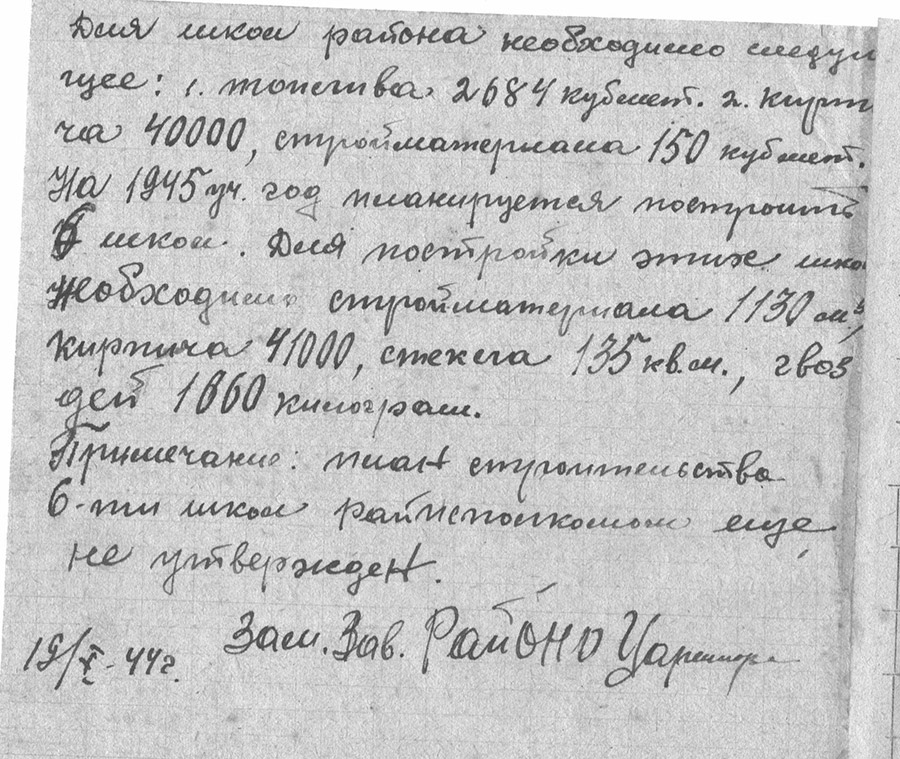 Для школ района необходимо следую
щее: 1. топлива 2684 кубмет. 2. кирпи
ча 40000, стройматериала 150 кубмет.
На 1945 уч. год планируется построить
6 школ. Для постройки этих шко
необходимо стройматериала 1130 м³,
кирпича 41000, стекла 135 кв.м., гвоз
дей 1060 килограм.
Примечание: план строительства
6-ти школ райисполкомом еще
не утвержден.
Зам. Зав. РайОНО
19/X-44г.